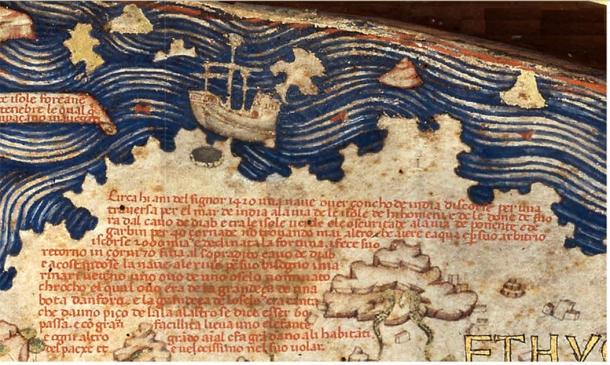 isole
tenebre le qual
Circa hi ani del signor 1420 una naue ouer çoncho de india discorse per una
trauersa per el mar de india a la uia de le isole de hi homeni e de le done de fuo
ra dal cauo de diab e tra le isole uerde e le oscuritade a la uia de ponente e de
garbin per 40 çornade nō trouando mai altro che aiere e aqua e p suo arbitrio
iscorse 2000 mia e declinata la fortuna i fece suo
retorno in çorni 70 fina al sopradito cauo de diab
e acostādose la naue a le riue p suo bisogno i ma
rinari ueđeno uno ouo de uno oselo nominato
chrocho el qual ouo era de la grandeça de una
bota d anfora e la grandeça de loselo era tanta
che dauno piço de lala a laltro se dice esser 60
passa e cō gran facilita lieua uno elefante
e ogni altro grādo aīal e fa gra dano a li habitāti
del paexe et e uelocissimo nel suo uolar
ETHYO